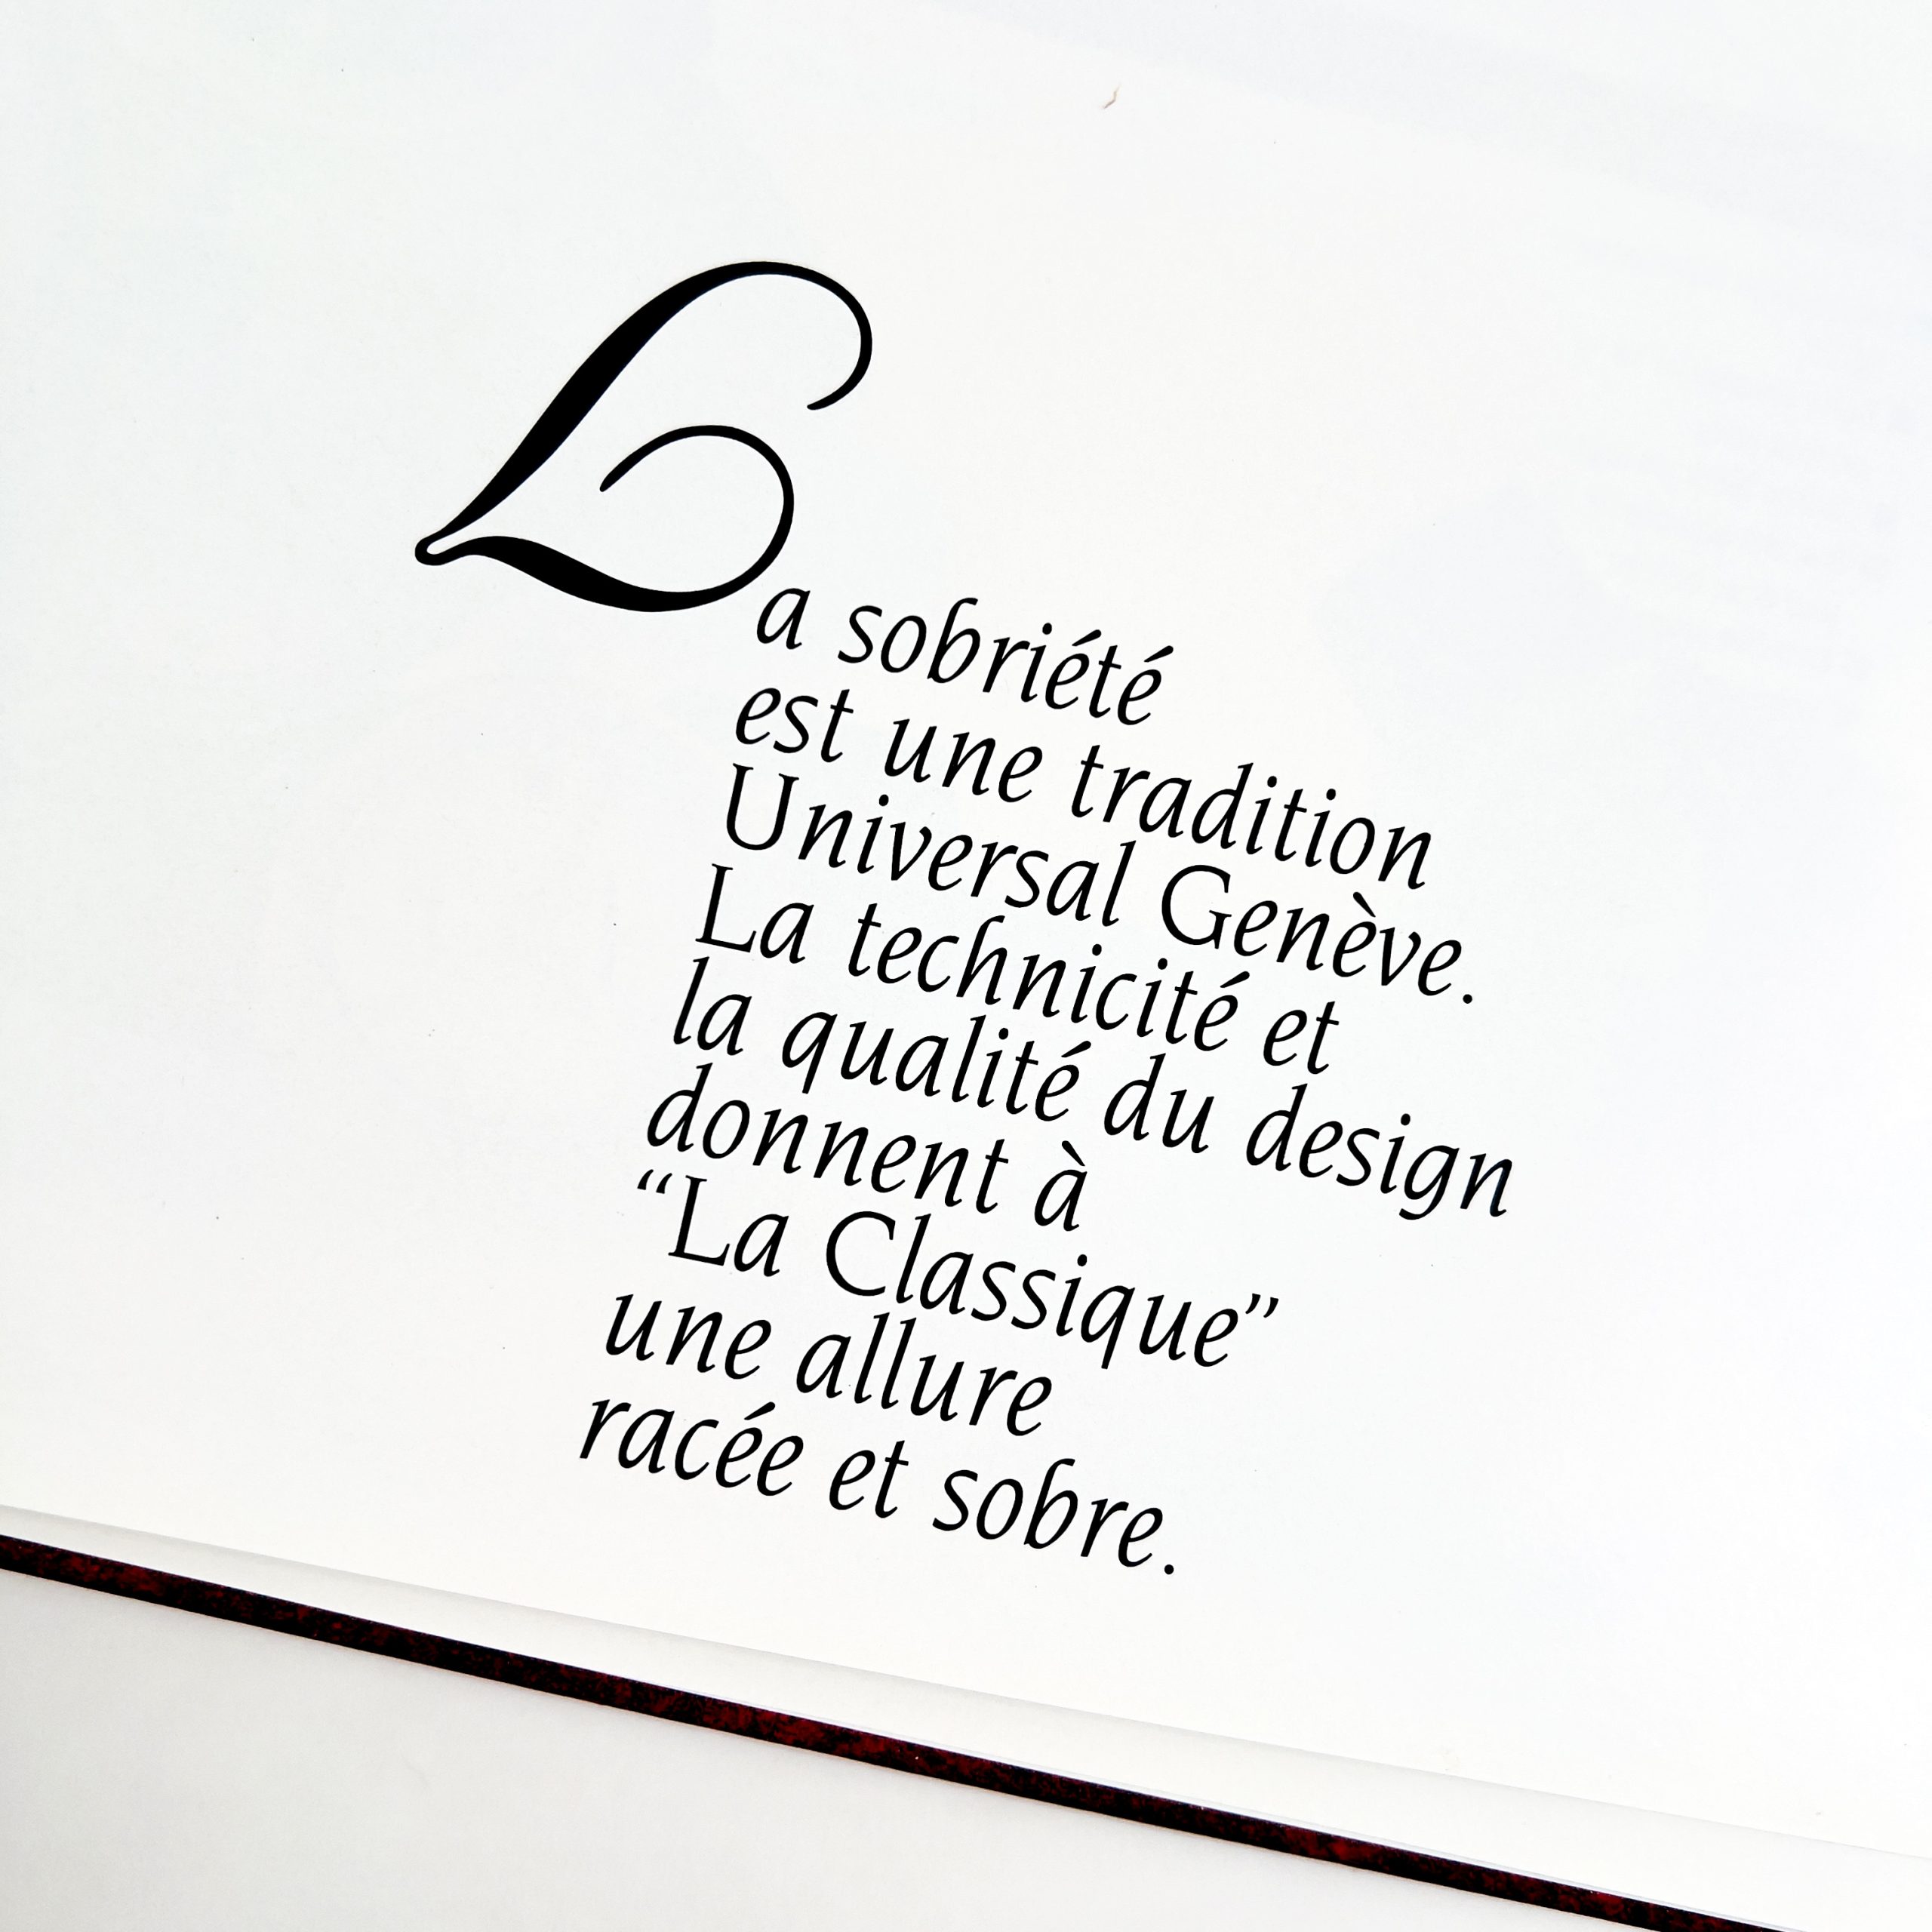 La sobriété
est une tradition
Universal Genève.
La technicité et
la qualité du design
donnent à
“La Classique”
une allure
racée et sobre.